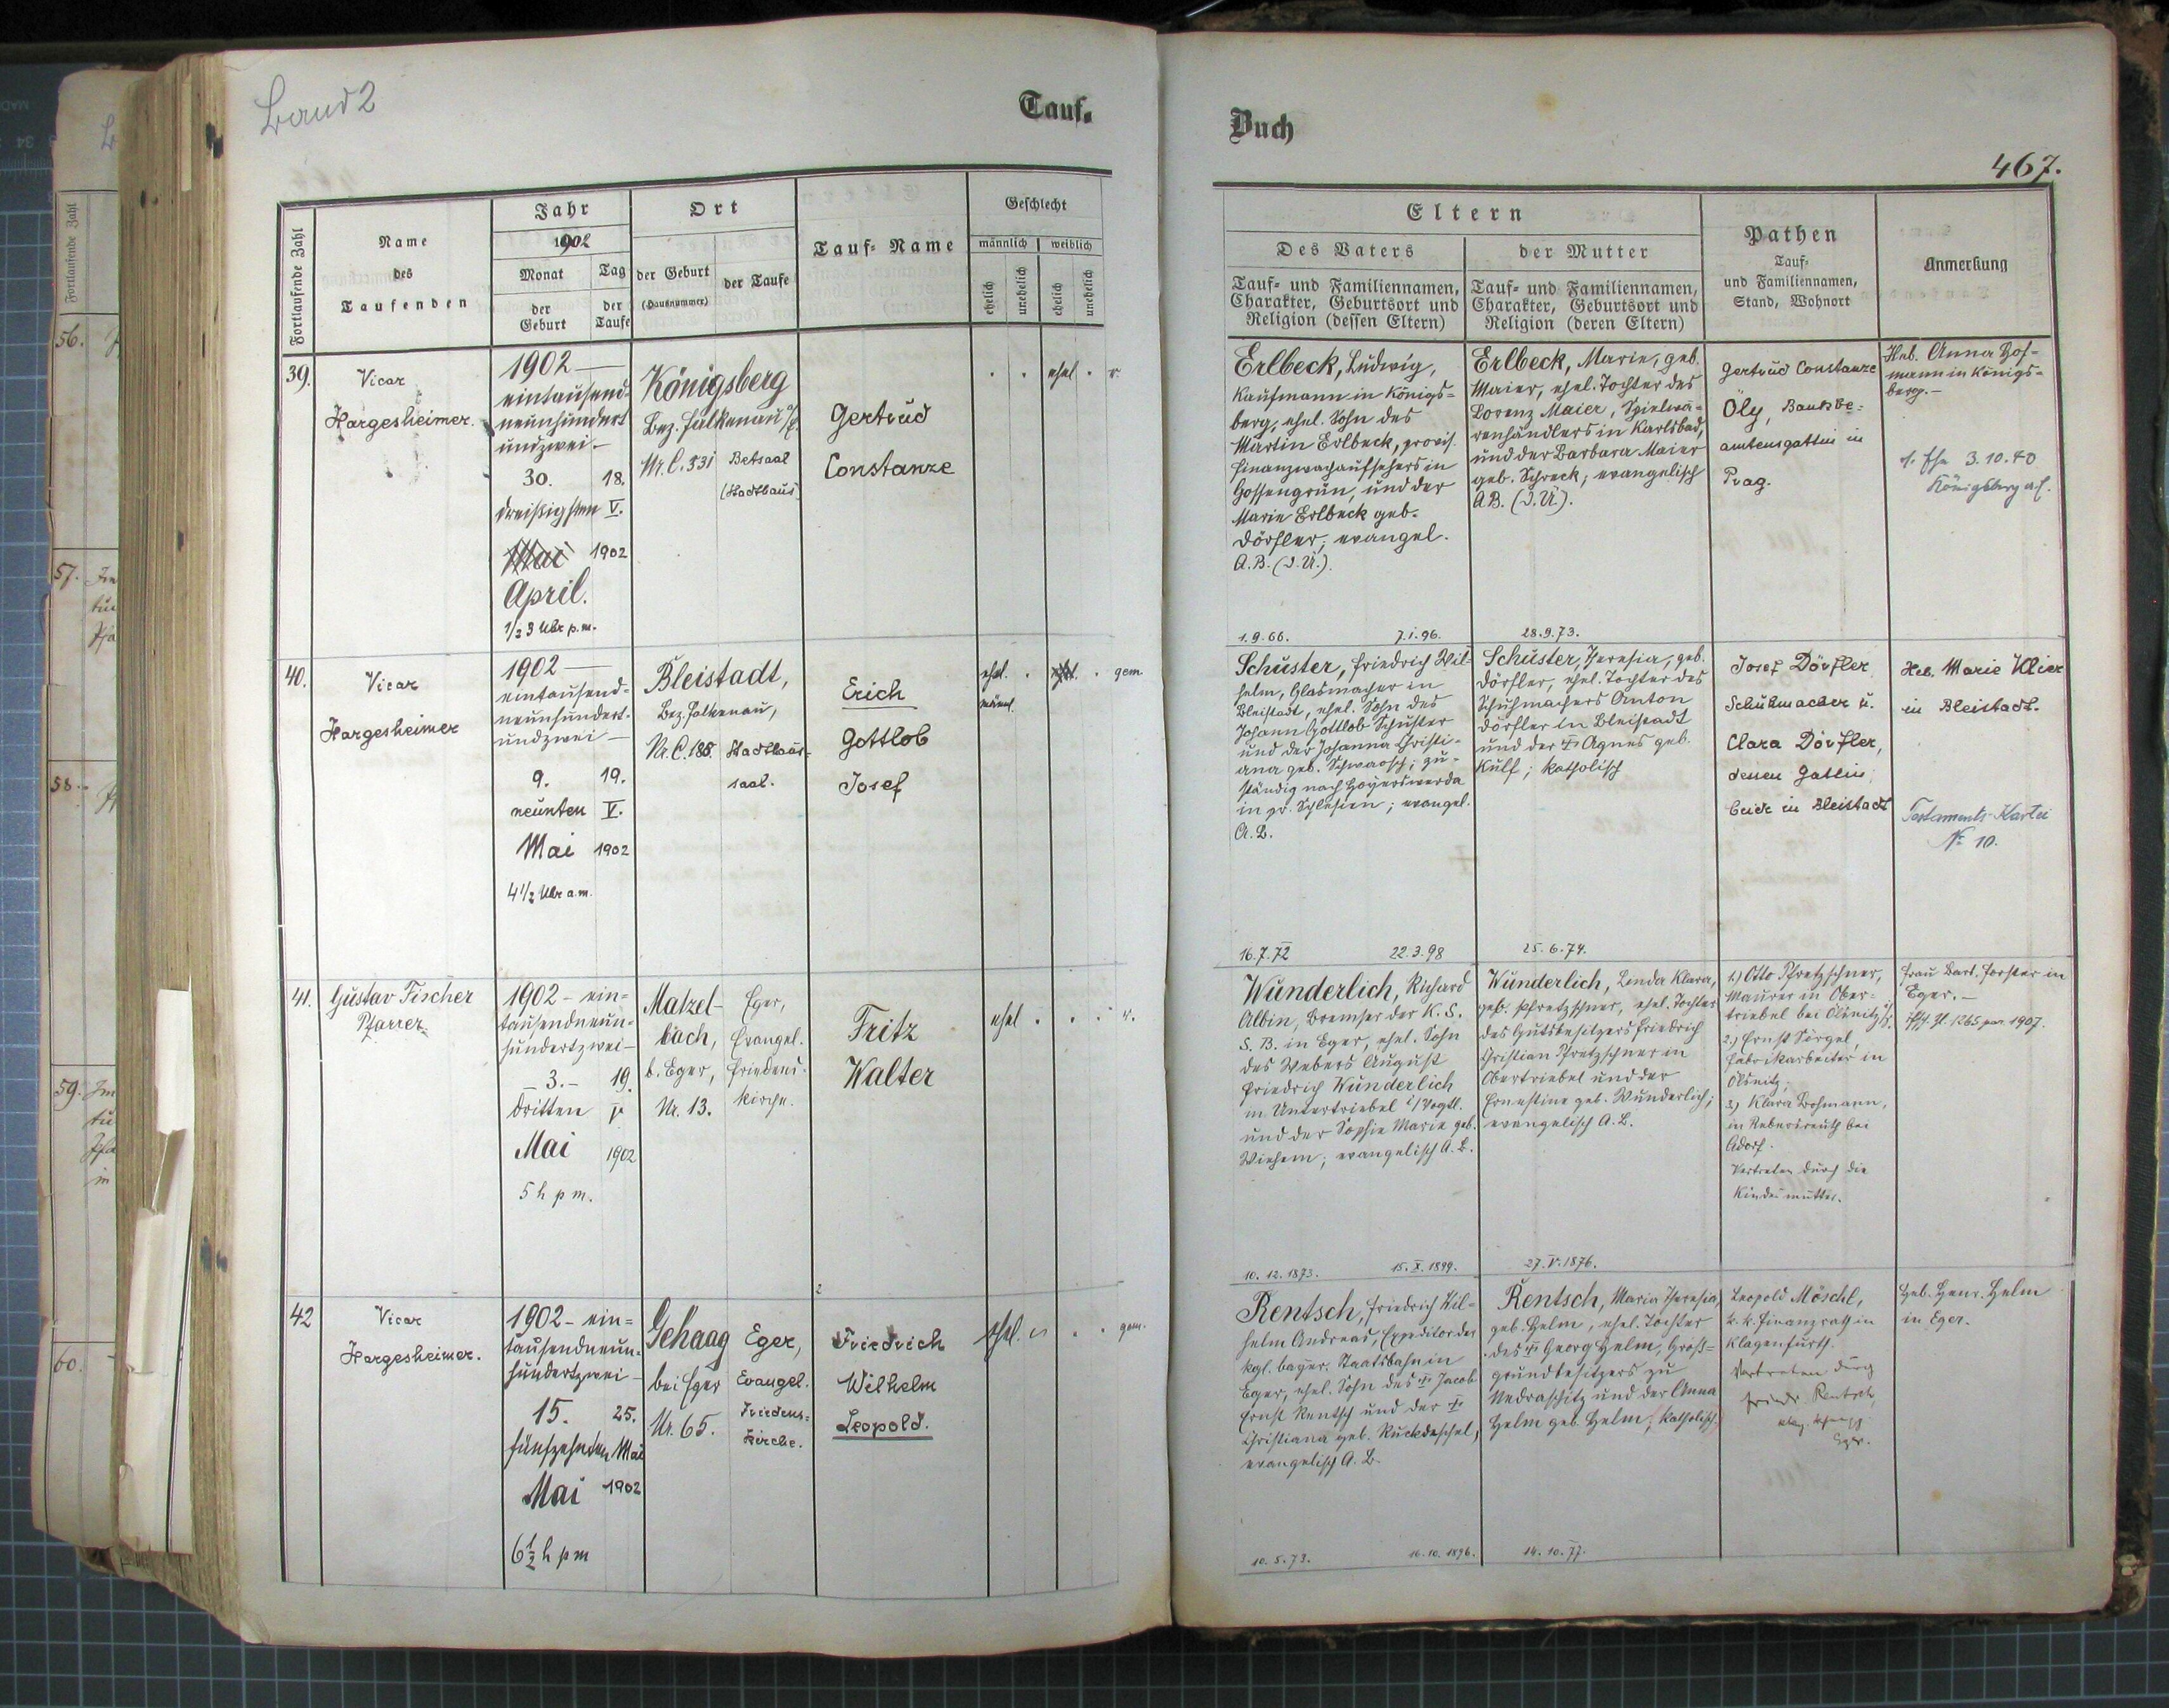 Band 2
Tauf-
Buch
467.
Fortlaufende Zahl
Name
des
Taufenden
Jahr
1902
Monat
der
Geburt
Tag
der
Taufe
Ort
der Geburt
(Hausnummer)
der Taufe
Tauf-Name
Geschlecht
männlich
weiblich
ehelich
unehelich
ehelich
unehelich
Eltern
Des Vaters
Tauf- und Familiennamen,
Charakter, Geburtsort und
Religion (dessen Eltern)
der Mutter
Tauf- und Familiennamen,
Charakter, Geburtsort und
Religion (deren Eltern)
Pathen
Tauf-
und Familiennamen,
Stand, Wohnort
Anmerkung
39.
Vicar
Hargesheimer.
1902
eintausend-
neunhundert
undzwei.-
30.
dreißigsten
Mai
April.
1/23 Uhr p.m.
18.
V.
1902
Königsberg
Bez. Falkenau a/E.
Nr. C. 331
Betsaal
(Stadthaus)
Gertrud
Constanze
ehel.
Erlbeck, Ludwig,
Kaufmann in Königs-
berg, ehel. Sohn des
Martin Erlbeck, provis.
Finanzwachaufsehers in
Gossengrün, und der
Marie Erlbeck geb.
Dörfler; evangel.
A.B. (d.Ü.).
1.9.66.
7.1.96.
Erlbeck, Marie, geb.
Maier, ehel. Tochter des
Lorenz Maier, Spielwa-
renhändlers in Karlsbad,
und der Barbara Maier
geb. Schreck; evangelisch
A.B. (d.Ü.).
28.9.73.
Gertrud Constanze
Öly, Bankbe-
amtensgattin in
Prag.
Heb. Anna Hof-
mann in Königs-
berg.-
3.10.40
Königsberg a.E.
40.
Vicar
Hargesheimer
1902
eintausend-
neunhundert-
undzwei
9.
neunten
Mai
4 1/2 Uhr a.m.
19.
V.
1902
Bleistadt,
Bez. Falkenau,
Nr. C. 188.
Stadthaus-
saal.
Erich
Gottlob
Josef
ehel.
männl.
gem.
Schuster, Friedrich Wil-
helm, Glasmacher in
Bleistadt, ehel. Sohn des
Johann Gottlob Schuster
und der Johanna Christi-
ana geb. Schwarsch; zu-
ständig nach Hoyerswerda
in pr. Schlesien; evangel.
A.B.
16.7.72
22.3.98
Schuster, Theresia, geb.
Dörfler, ehel. Tochter des
Schuhmachers Anton
Dörfler in Bleistadt
und der † Agnes geb.
Külf; katholisch
25.6.74.
Josef Dörfler
Schuhmacher u.
Clara Dörfler,
dessen Gattin
beide in Bleistadt
Heb. Marie Klier
in Bleistadt.
Testaments-Kartei
No 10.
41.
Gustav Fischer
Pfarrer.
1902 - ein-
tausendneun-
hundertzwei-
- 3.-
dritten
Mai
5 h p m.
19.
1902
Matzel-
bach,
b. Eger,
Nr. 13.
Eger,
Evangel.
Friedens-
kirche.
Fritz
Walter
ehel
Wunderlich, Richard
Albin, Bremser der K. S.
S. B. in Eger, ehel. Sohn
des Webers August
Friedrich Wunderlich
in Untertriebel i/Vogtl.
und der Sophie Marie geb.
evangelisch A.B.
10.12.1873.
15.X.1899.
Wunderlich, Linda Klara,
geb. Pfretzschner, ehel. Tochter
des Gutsbesitzers Friedrich
Christian Pfretzschner in
Obertriebel und der
Ernestine geb. Wunderlich;
evangelisch A.B.
27.V.1876.
1.) Otto Pfretzschner,
Maurer in Ober-
triebel bei Ölsnitz i/S.
2.) Ernst Sörgel,
Fabrikarbeiter in
Ölsnitz;
3.) Klara Lohmann,
in Rebersreuth bei
Adorf.
Vertreten durch die
Kindesmutter.
Frau Barb. Forster in
Eger.-
1265 1907.
42
Vicar
Hargesheimer.
1902 - ein-
tausendneun-
hundertzwei-
15.
fünfzehnten
Mai
6 1/2 h p m
25.
Mai
1902
Gehaag
bei Eger
Nr. 65.
Eger,
Evangel.
Friedens-
kirche.
Friedrich
Wilhelm
Leopold.
ehel.
gem.
Rentsch, Friedrich Wil-
helm Andreas, Expeditor der
kgl. bayer. Staatsbahn in
Eger, ehel. Sohn des † Jacob
Ernst Rentsch und der †
Christiana geb. Ruckdeschel,
evangelisch A.B.
10.5.73.
16.10.1896.
Rentsch, Maria Theresia,
geb. Helm, ehel. Tochter
des † Georg Helm, Groß-
grundbesitzers zu
Nedraschitz und der Anna
Helm geb. Helm, katholisch.
14.10.77.
Leopold Möschl,
k. k. Finanzrath in
Klagenfurth.
Vertreten durch
Friedr. Rentsch,
Eger.
Heb. Henr. Helm
in Eger.
56.
57.
58.
59.
60.